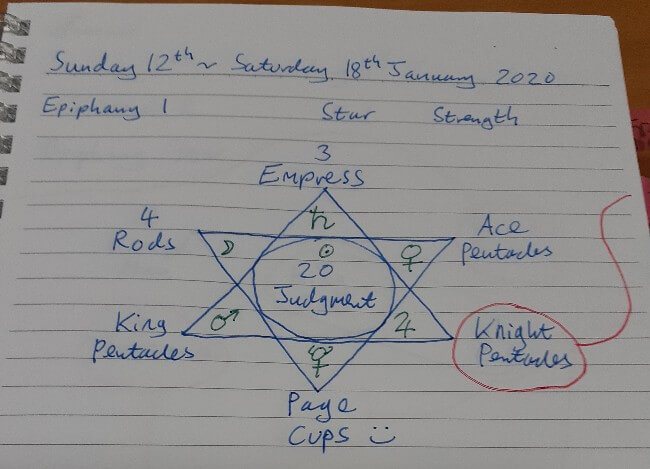 Sunday 12th ~ Saturday 18th January 2020
Epiphany 1 Star Strength
3
Empress
4
Rods
Ace
Pentacles
♄
☽
☉
♀
20
Judgment
King
Pentacles
♂
♃
Knight
Pentacles
☿
Page
Cups :)